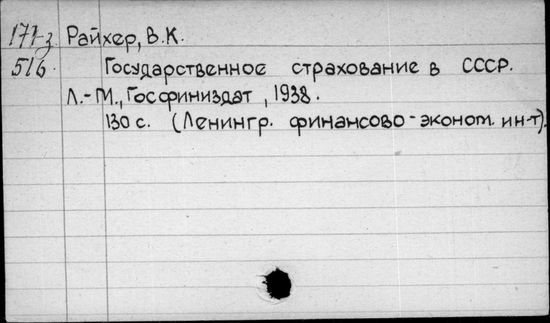 177-з. Райхер, В.К.
516. Государственное страхование в СССР.
Л.-М., Госфиниздат, 1938.
130 с. (Ленингр. финансово-эконом. ин-т).